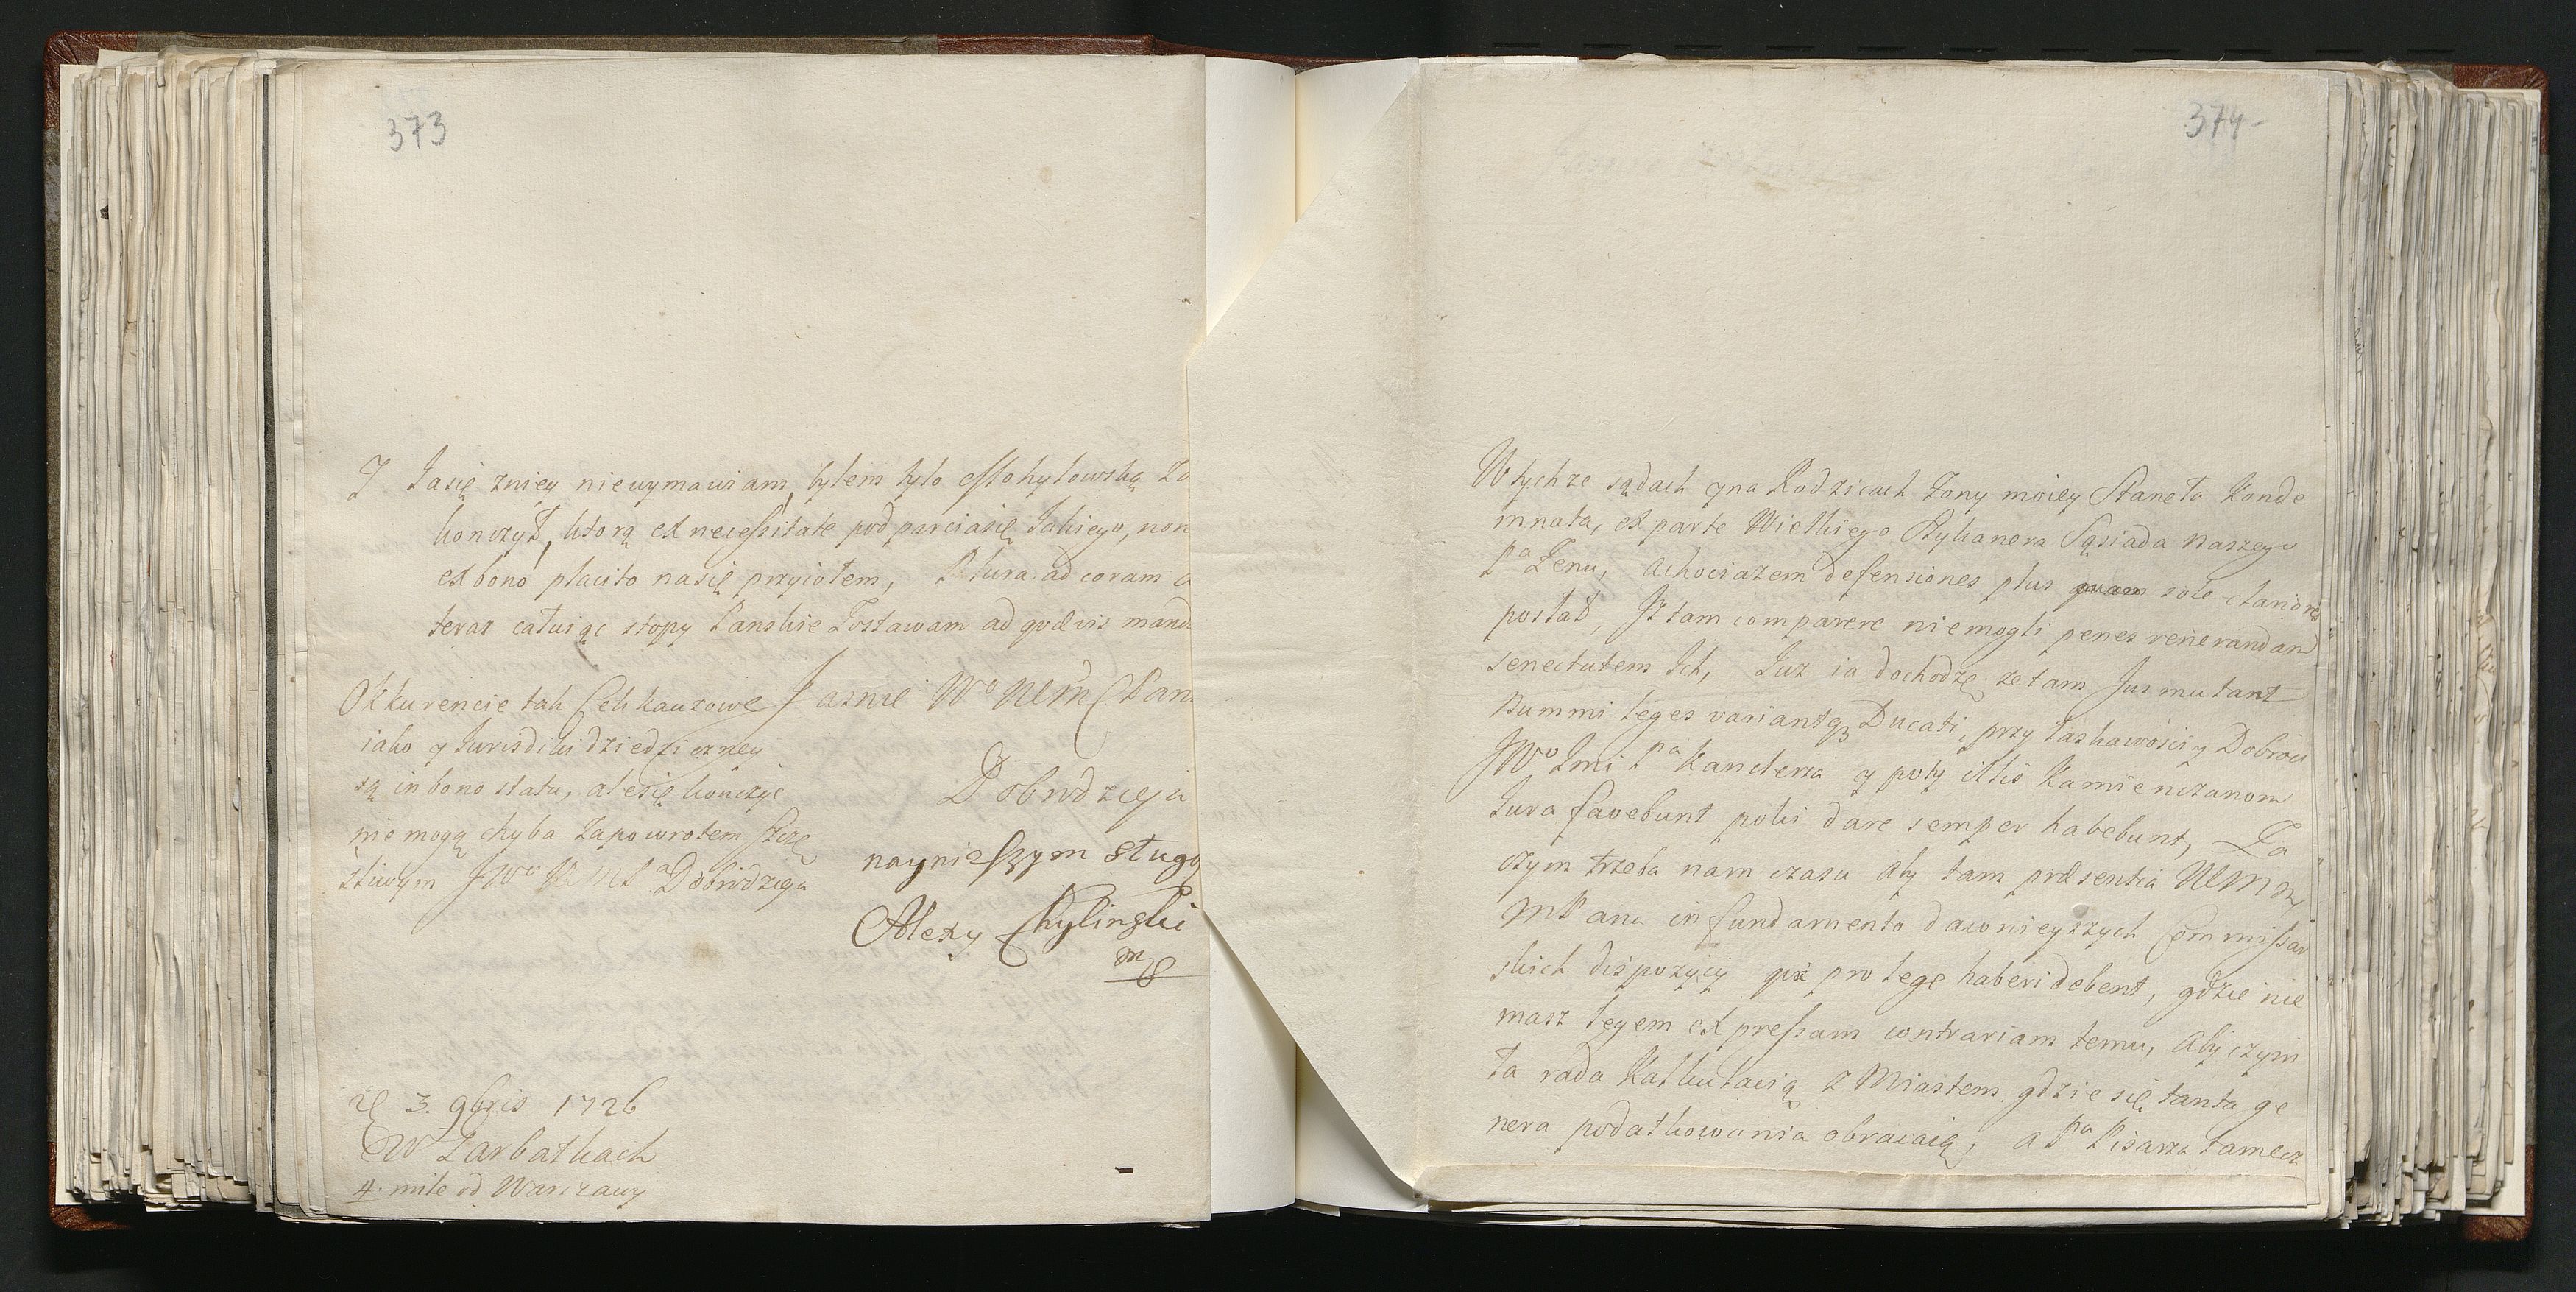 373
J Jasię zniey niewymawiam, bylem tylo Mohylowską
konczył, ktorą ex necessitate pod parciasię Jakiego, non
ex bono placito nasię przyiołem, Plura ad coram
teraz całuiąc stopy Panskie Zostawam ad quævis mand
Okkurencie tak Cehkauzowe
iako y Jurisdikidziedziczney
są in bono statu, alesię konczyć
nie mogą chyba Zapowrotem Szczę
śliwym JWo WM Pa Dobrodzieja
Jasnie Wo WM Pan
Dobrodzieja
nayniższym sługą
Alexy Chylinski
mp
D 3. 9bris 1726
W Zarbatkach
4. mile od Warszawy
374
Wtychze sądach yna Rodzicach Zony moiey Staneła Konde
mnata, ex parte Wielkiego Rykanera Sąsiada naszego
Pa Zenu, achociazem defensiones plus quam sole clariores
posłał, Iż tam comparere niemogli penes venerandam
senectutem Ich, Juz ia dochodzę ze tam Jus mutant
Nummi leges variantq3 Ducati, przy łaskawości y Dobroci
JWo Jmi Pa Kanclerza y poty illis Kamienczanom
Jura favebunt poki dare semper habebunt, Za
czym trzeba nam czasu aby tam præsentia WM
MPana in fundamento dawnieyszych Commissar
skich dispozycij quæ pro lege haberi debent, gdzie nie
masz legem expressam contrariam temu, Aby czym
Ta rada Kalkulacią z Miastem gdzie się tanta ge
nera podatkowania obracaią, a Pa Pisarza tamecz